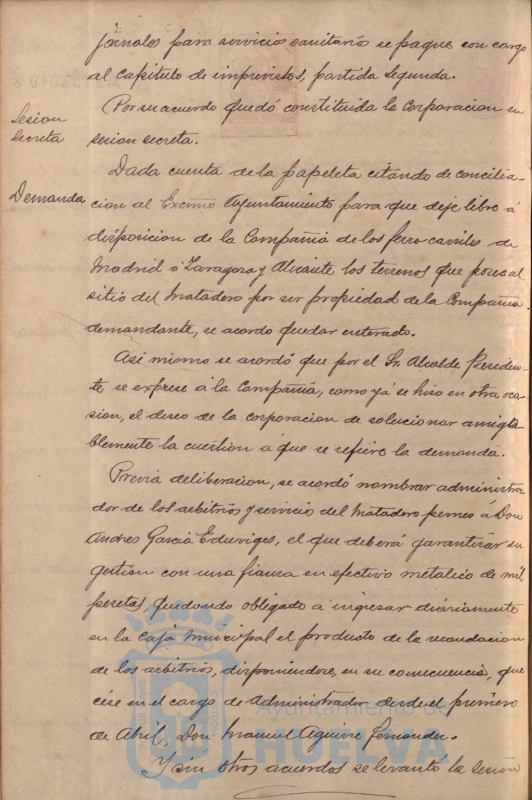 jornales para servicio sanitario se pague con cargo
al capitulo de imprevistos, partida segunda.
Sesion
Secreta
Por su acuerdo quedó constituida la Corporacion en
sesion secreta.
Demanda
Dada cuenta de la papeleta citando de concilia-
cion al Excmo Ayuntamiento para que deje libre á
disposicion de la Compañia de los ferro-carriles de
Madrid á Zaragoza y Alicante los terrenos que posee al
sitio del Matadero por ser propiedad de la Compañia
demandante, se acordo quedar enterado.
Asi mismo se acordó que por el Sr. Alcalde Presiden-
te se exprese á la Compañia, como yá se hizo en otra oca-
sion, el deseo de la corporacion de solucionar amiga-
blemente la cuestion a que se refiere la demanda.
Previa deliberacion, se acordó nombrar administra
dor de los arbitrios y servicio del Matadero á Don
Andres Garcia Eduviges, el que deberá garantizar su
gestion con una fianza en efectivo metalico de mil
pesetas, quedando obligado a ingresar diariamente
en la Caja Municipal el producto de la recaudacion
de los arbitrios, disponiendose, en su consecuencia, que
cese en el cargo de Administrador desde el primero
de Abril, Don Manuel Aguirre Fernandez.
Y sin otros acuerdos se levantó la sesión
Ayuntamiento de
HUELVA